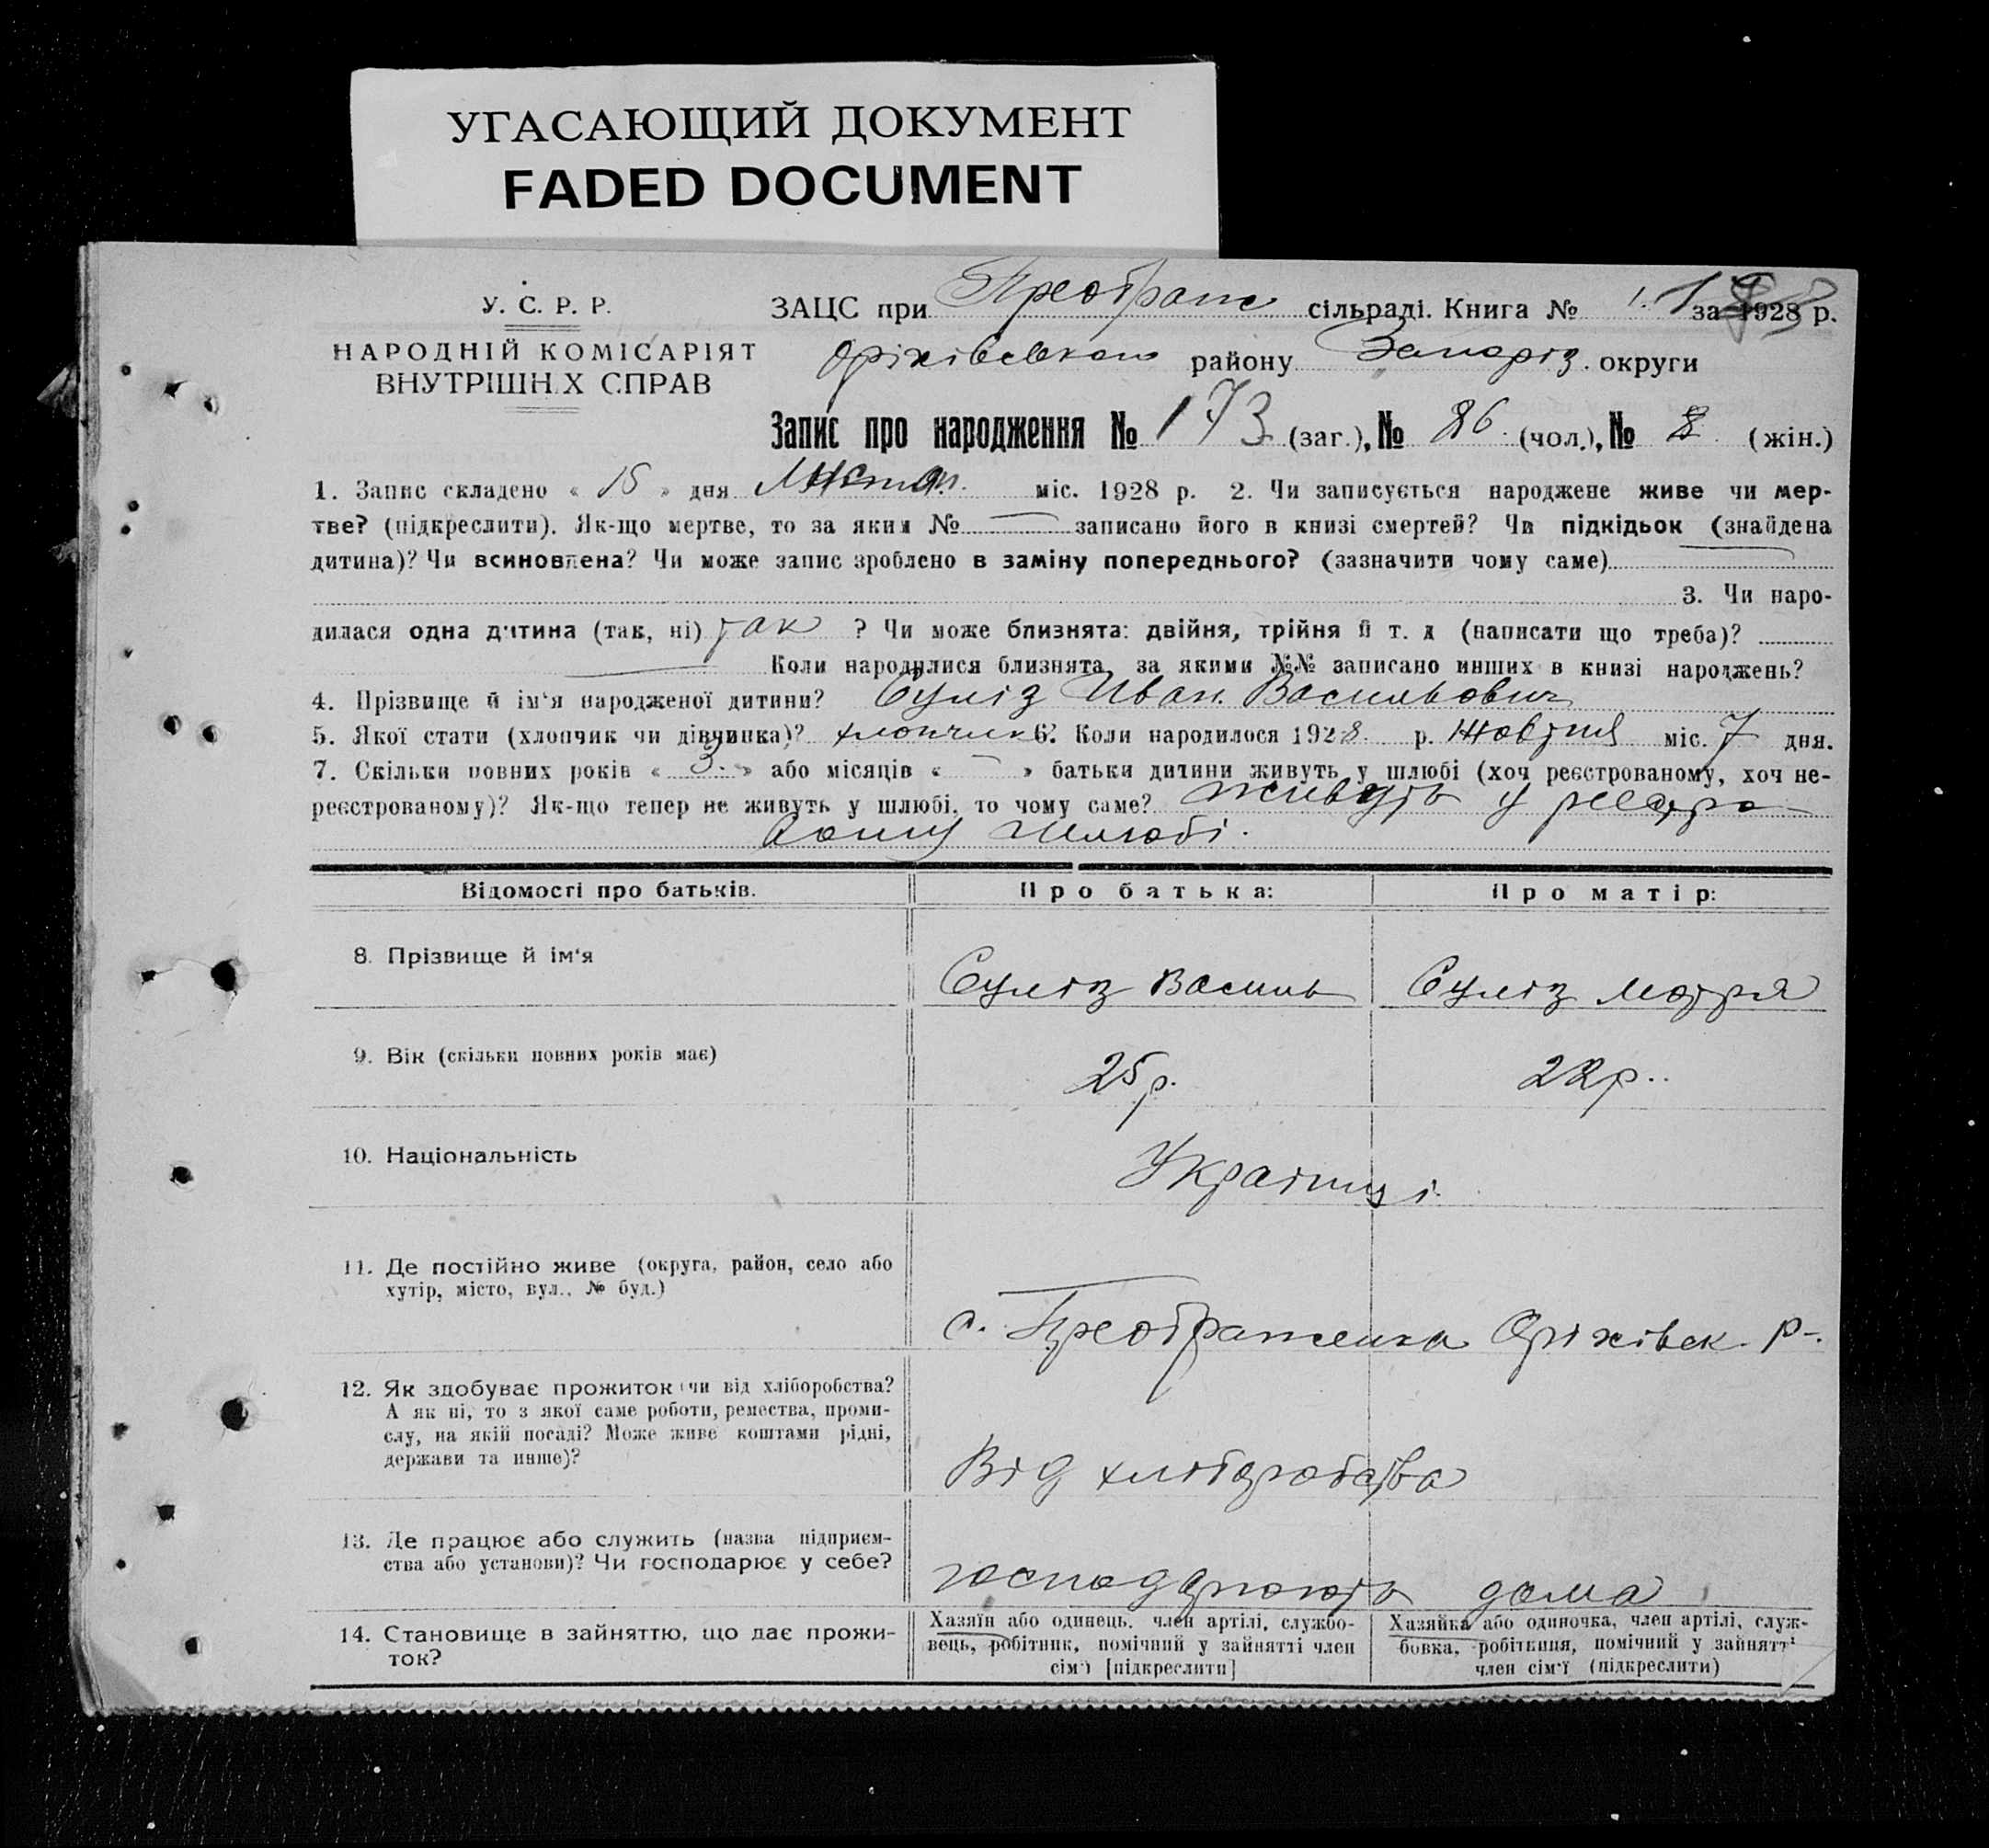 УГАСАЮЩИЙ ДОКУМЕНТ
FADED DOCUMENT
У. С. Р. Р.
НАРОДНІЙ КОМІСАРІЯТ
ВНУТРІШН.Х СПРАВ
ЗАЦС при Преображ сільраді. Книга № за 1928 р.
Оріхівського району Запоріз. округи
Запис про народження № 173 (заг.), № 86 (чол.), № (жін.)
1. Запис складено « 15 » дня міс. 1928 р. 2. Чи записується народжене живе чи мер-
тве? (підкреслити). Як-що мертве, то за яким № записано його в книзі смертей? Чи підкідьок (знайдена
дитина)? Чи всиновлена? Чи може запис зроблено в заміну попереднього? (зазначити чому саме)
3. Чи наро-
дилася одна дитина (так, ні) так ? Чи може близнята: двійня, трійня й т. д (написати що треба)?
Коли народилися близнята, за якими №№ записано инших в книзі народжень?
4. Прізвище й ім'я народженої дитини? Суліз Иван. Васильович
5. Якої стати (хлопчик чи дівчинка)? хлопчик 6. Коли народилося 1928 р. Жовтня міс. 7 дня.
7. Скільки повних років « 3. » або місяців « – » батьки дитини живуть у шлюбі (хоч реєстрованому, хоч не-
реєстрованому)? Як-що тепер не живуть у шлюбі, то чому саме? живуть у реєстро-
ваному шлюбі.
Відомості про батьків.
Про батька:
Про матір:
8. Прізвище й ім'я
Суліз Василь
Суліз Мотря
9. Вік (скільки повних років має)
25 р.
22 р..
10. Національність
Українці.
11. Де постійно живе (округа, район, село або
хутір, місто, вул., № буд.)
с. Преображенка Оріхівськ. р-.
12. Як здобуває прожиток (чи від хліборобства?
А як ні, то з якої саме роботи, ремества, проми-
слу, на якій посаді? Може живе коштами рідні,
держави та инше)?
Від хліборобства
13. Де працює або служить (назва підприєм-
ства або установи)? Чи господарює у себе?
господарюють дома
14. Становище в зайняттю, що дає прожи-
ток?
Хазяїн або одинець, член артілі, службо-
вець, робітник, помічний у зайнятті член
сім'ї [підкреслити]
Хазяйка або одиночка, член артілі, служ-
бовка, робітниця, помічний у зайнятті
член сім'ї (підкреслити)